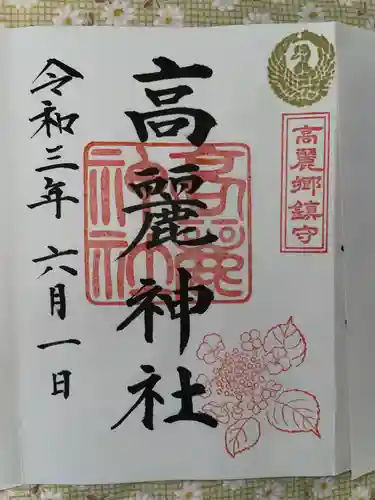 高麗郷鎮守
高麗神社
高麗神社
令和三年 六月一日